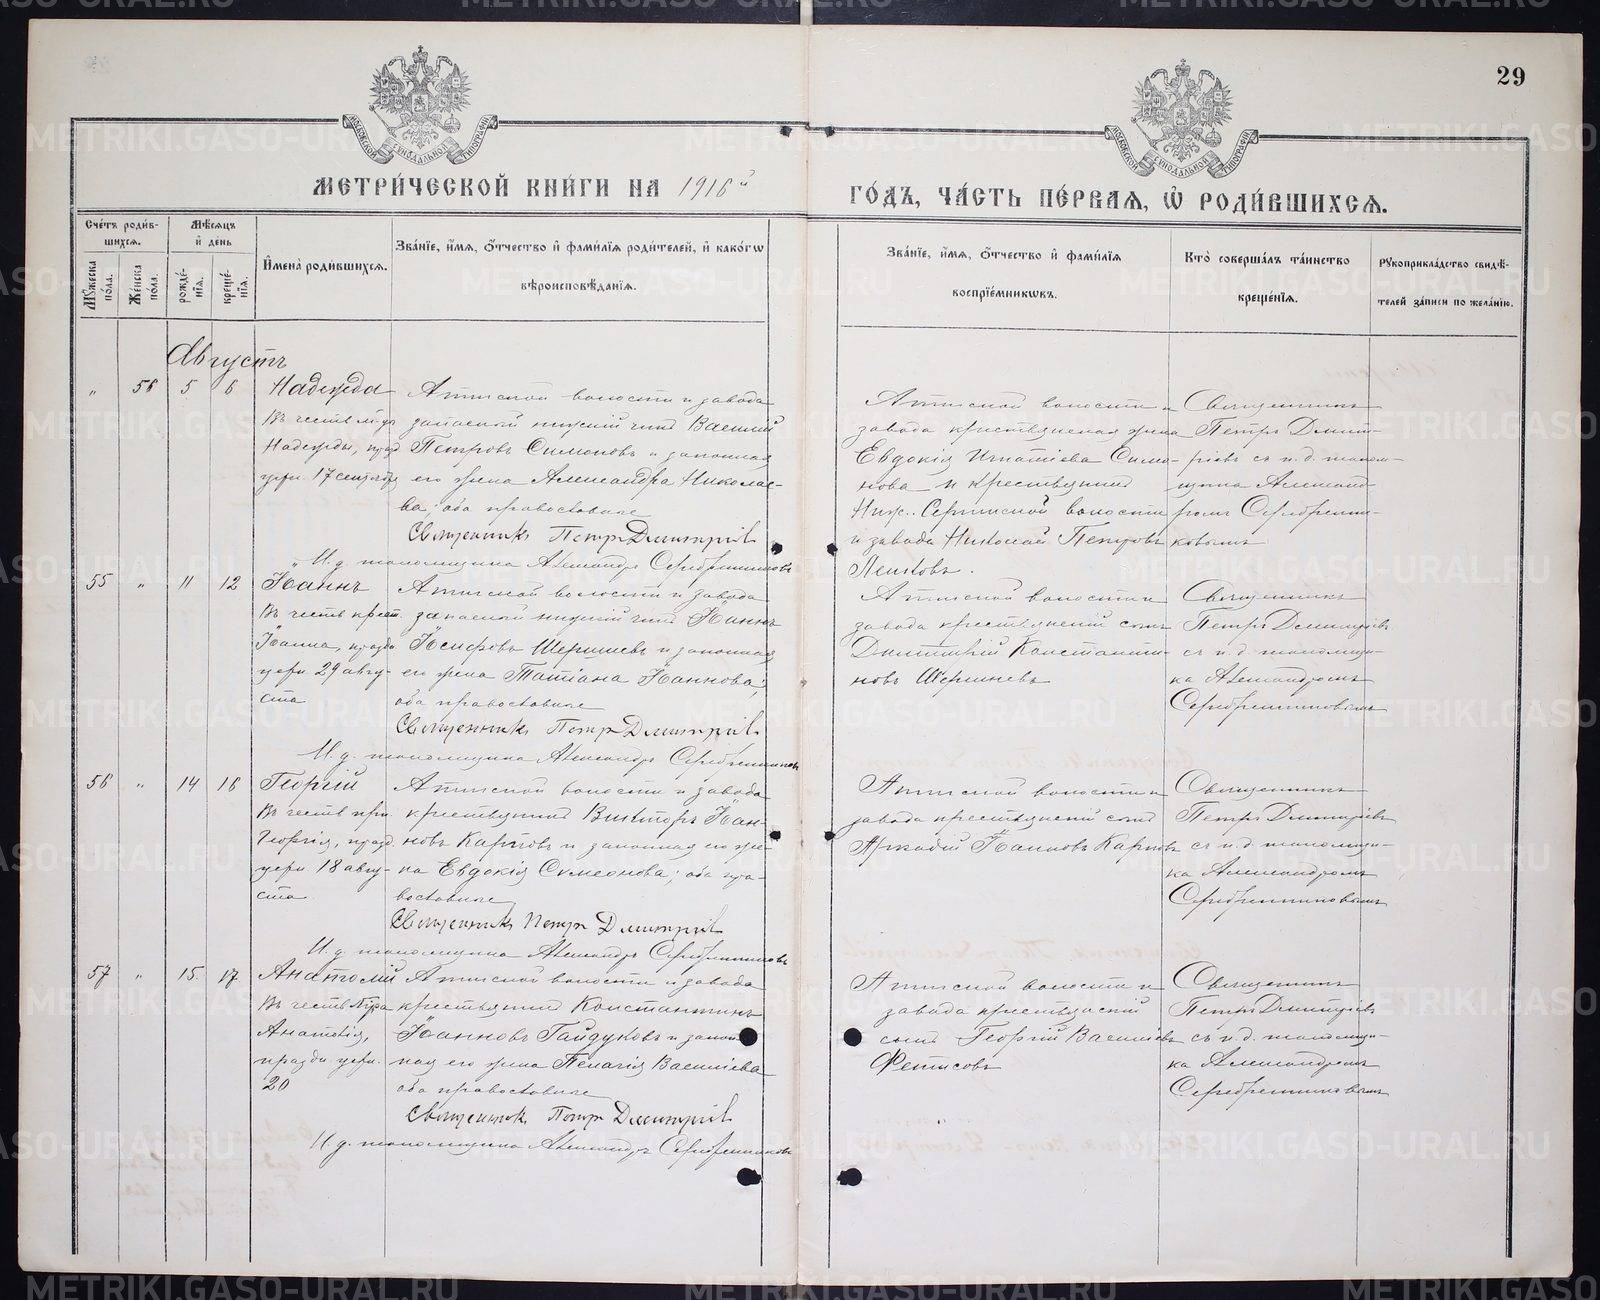 29
МОСКОВСКОЙ СѴНОДАЛЬНОЙ ТИПОГРАФІИ
МОСКОВСКОЙ СѴНОДАЛЬНОЙ ТИПОГРАФІИ
МЕТРИ́ЧЕСКОЙ КНИ́ГИ НА 1916й
ГО́ДЪ, ЧА́СТЬ ПЕ́РВАЯ, Ѡ РОДИ́ВШИХСЯ.
Сче́тъ роди́в-
шихся.
Мѣ́сяцъ
и́ де́нь
Му́жеска по́ла.
Же́нска по́ла.
рожде́-
нія.
креще́-
нія.
И́мена̀ роди́вшихся.
Зва́ніе, и́мя, о́тчество и́ фами́лія роди́телей, и́ како́гѡ
вѣроисповѣ́данія.
Зва́ніе, и́мя, о́тчество и́ фами́лія
воспріе́мниковъ.
Кто̀ соверша́лъ та́инство
креще́нія.
Рукоприкла́дство свидѣ́-
телей за́писи по жела́нію.
Августъ
" 56 5 6
Надежда
Въ честь
Надежды, празд.
церк. 17 сентября
Атигской волости и завода
запасной нижній чинъ Василій
Петровъ Симоновъ и законная
его жена Александра Николае-
ва; оба православные
Священникъ Петръ Димитріевъ
И. д. псаломщика Александръ Серебренниковъ
Атигской волости и
завода крестьянская жена
Евдокія Игнатіева Симо-
нова и крестьянинъ
Ниж.-Сергинской волости
и завода Николай Петровъ
Священникъ
Петръ Димит-
ріевъ съ и. д. псалом-
щика Александ-
ромъ Серебренни-
ковымъ
55 " 11 12
Іоаннъ
Въ честь крест.
Іоанна, празд.
церк. 29 авгу-
ста
Атигской волости и завода
запасной нижній чинъ Іоаннъ
Іосифовъ Шершневъ и законная
его жена Татіана Іоаннова;
оба православные
Священникъ Петръ Димитріевъ
И. д. псаломщика Александръ Серебренниковъ
Атигской волости и
завода крестьянскій сынъ
Димитрій Константи-
новъ Шершневъ
Священникъ
Петръ Димитріевъ
съ и. д. псаломщи-
ка Александромъ
Серебренниковымъ
56 " 14 16
Георгій
Въ честь
Георгія, празд.
церк. 18 авгу-
ста
Атигской волости и завода
крестьянинъ Викторъ Іоан-
новъ Карповъ и законная его же-
на Евдокія Симеонова; оба пра-
вославные
Священникъ Петръ Димитріевъ
И. д. псаломщика Александръ Серебренниковъ
Атигской волости и
завода крестьянскій сынъ
Аркадій Іоанновъ Карповъ
Священникъ
Петръ Димитріевъ
съ и. д. псаломщи-
ка Александромъ
Серебренниковымъ
57 " 15. 17.
Анатолій
Въ честь
Анатолія,
праздн. церк.
20
Атигской волости и завода
крестьянинъ Константинъ
Іоанновъ Гайдуковъ и закон-
ная его жена Пелагія Василіева
оба православные
Священникъ Петръ Димитріевъ
И. д. псаломщика Александръ Серебренниковъ
Атигской волости и
завода крестьянскій
сынъ Георгій Василіевъ
Фетисовъ
Священникъ
Петръ Димитріевъ
съ и. д. псаломщи-
ка Александромъ
Серебренниковымъ
METRIKI.GASO-URAL.RU